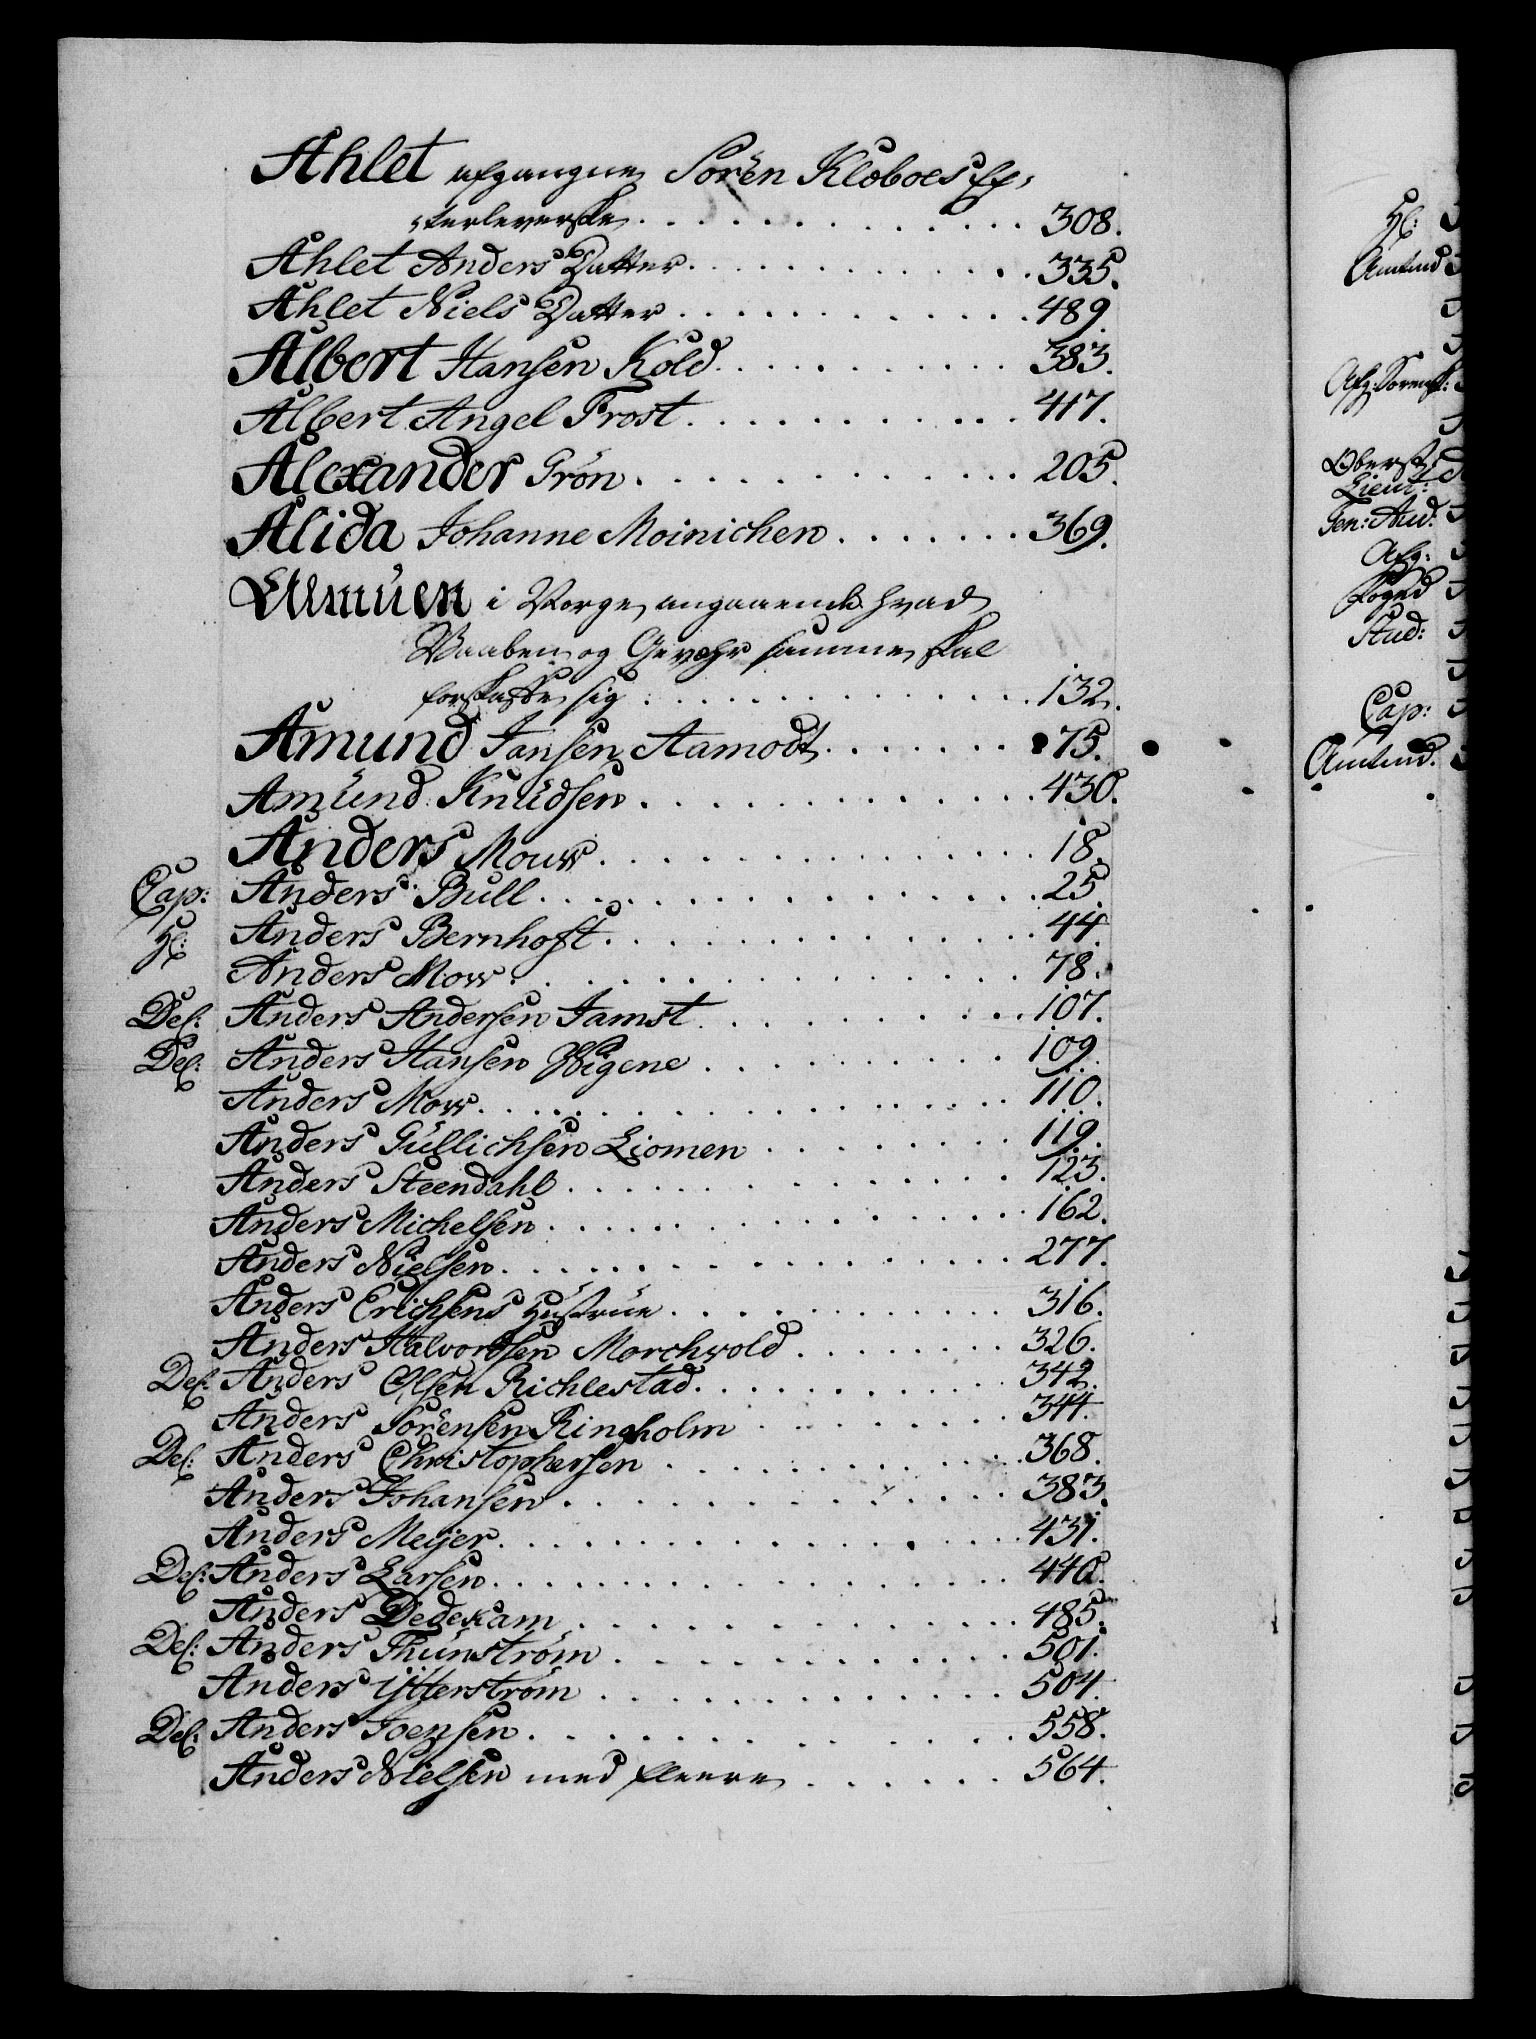 Ahlet afgangne Sorën Kloboes Ef,
terleverske . . . 308.
Ahlet Anders Datter . . . 335.
Ahlet Niels Datter . . . 489.
Albert Hansen Kold . . . 383.
Albert Angel Frost . . . 417.
Alexander Grön . . . 205.
Alida Johanne Moinichen . . . 369.
Allmuen i Norge, angaaende hvad
Vaaben og Gevæhr samme skal
forskaffe sig . . . 132.
Amund Jansen Aamodt . . . 75.
Amünd Knüdsen . . . 430.
Anders Mouw . . . 18.
Cap: Anders Bull . . . 25.
Hl: Anders Bernhoft . . . 44.
Anders Mow . . . 78.
Del: Anders Andersen Jamst . . . 107.
Del: Anders Hansen Wigene . . . 109.
Anders Mow . . . 110.
Anders Güllichsen Liomen . . . 119.
Anders Steendahl . . . 123.
Anders Michelsen . . . 162.
Anders Nielsen . . . 277.
Anders Erichsens Hustrue . . . 316.
Anders Halvordsen Morchvold . . . 326.
Del: Anders Olsen Richlestad . . . 342.
Anders Sörensen Ringholm . . . 344.
Del: Anders Christophersen . . . 368.
Anders Johansen . . . 383.
Anders Meijer . . . 431.
Del: Anders Larsen . . . 440.
Anders Dedekam . . . 485.
Del: Anders Thunström . . . 501.
Anders Ytterström . . . 504.
Del: Anders Joensen . . . 558.
Anders Nielsen med fleere . . . 564.
Hl:
Amtmd
Afg: Sorensk:
Oberst
Lieut:
Gen: Aud:
Afg:
Foged
Stud:
Cap:
Amtmd.